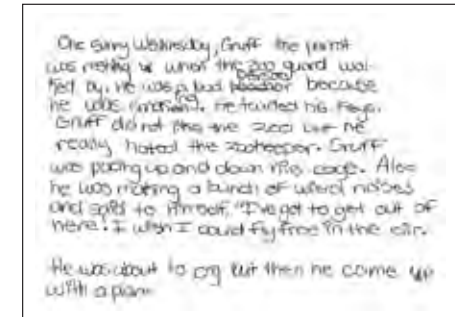 One sunny Wednesday, Gruff the parrot
was resting when the zoo guard wal-
ked by. He was a bad person because
he was He taunted his keys.
Gruff did not like the zoo but he
really hated the zookeeper. Gruff
was pacing up and down his cage. Also
he was making a bunch of weird noises
and said to himself, "I've got to get out of
here! I wish I could fly free in the air.
He was about to cry but then he come up
with a plan